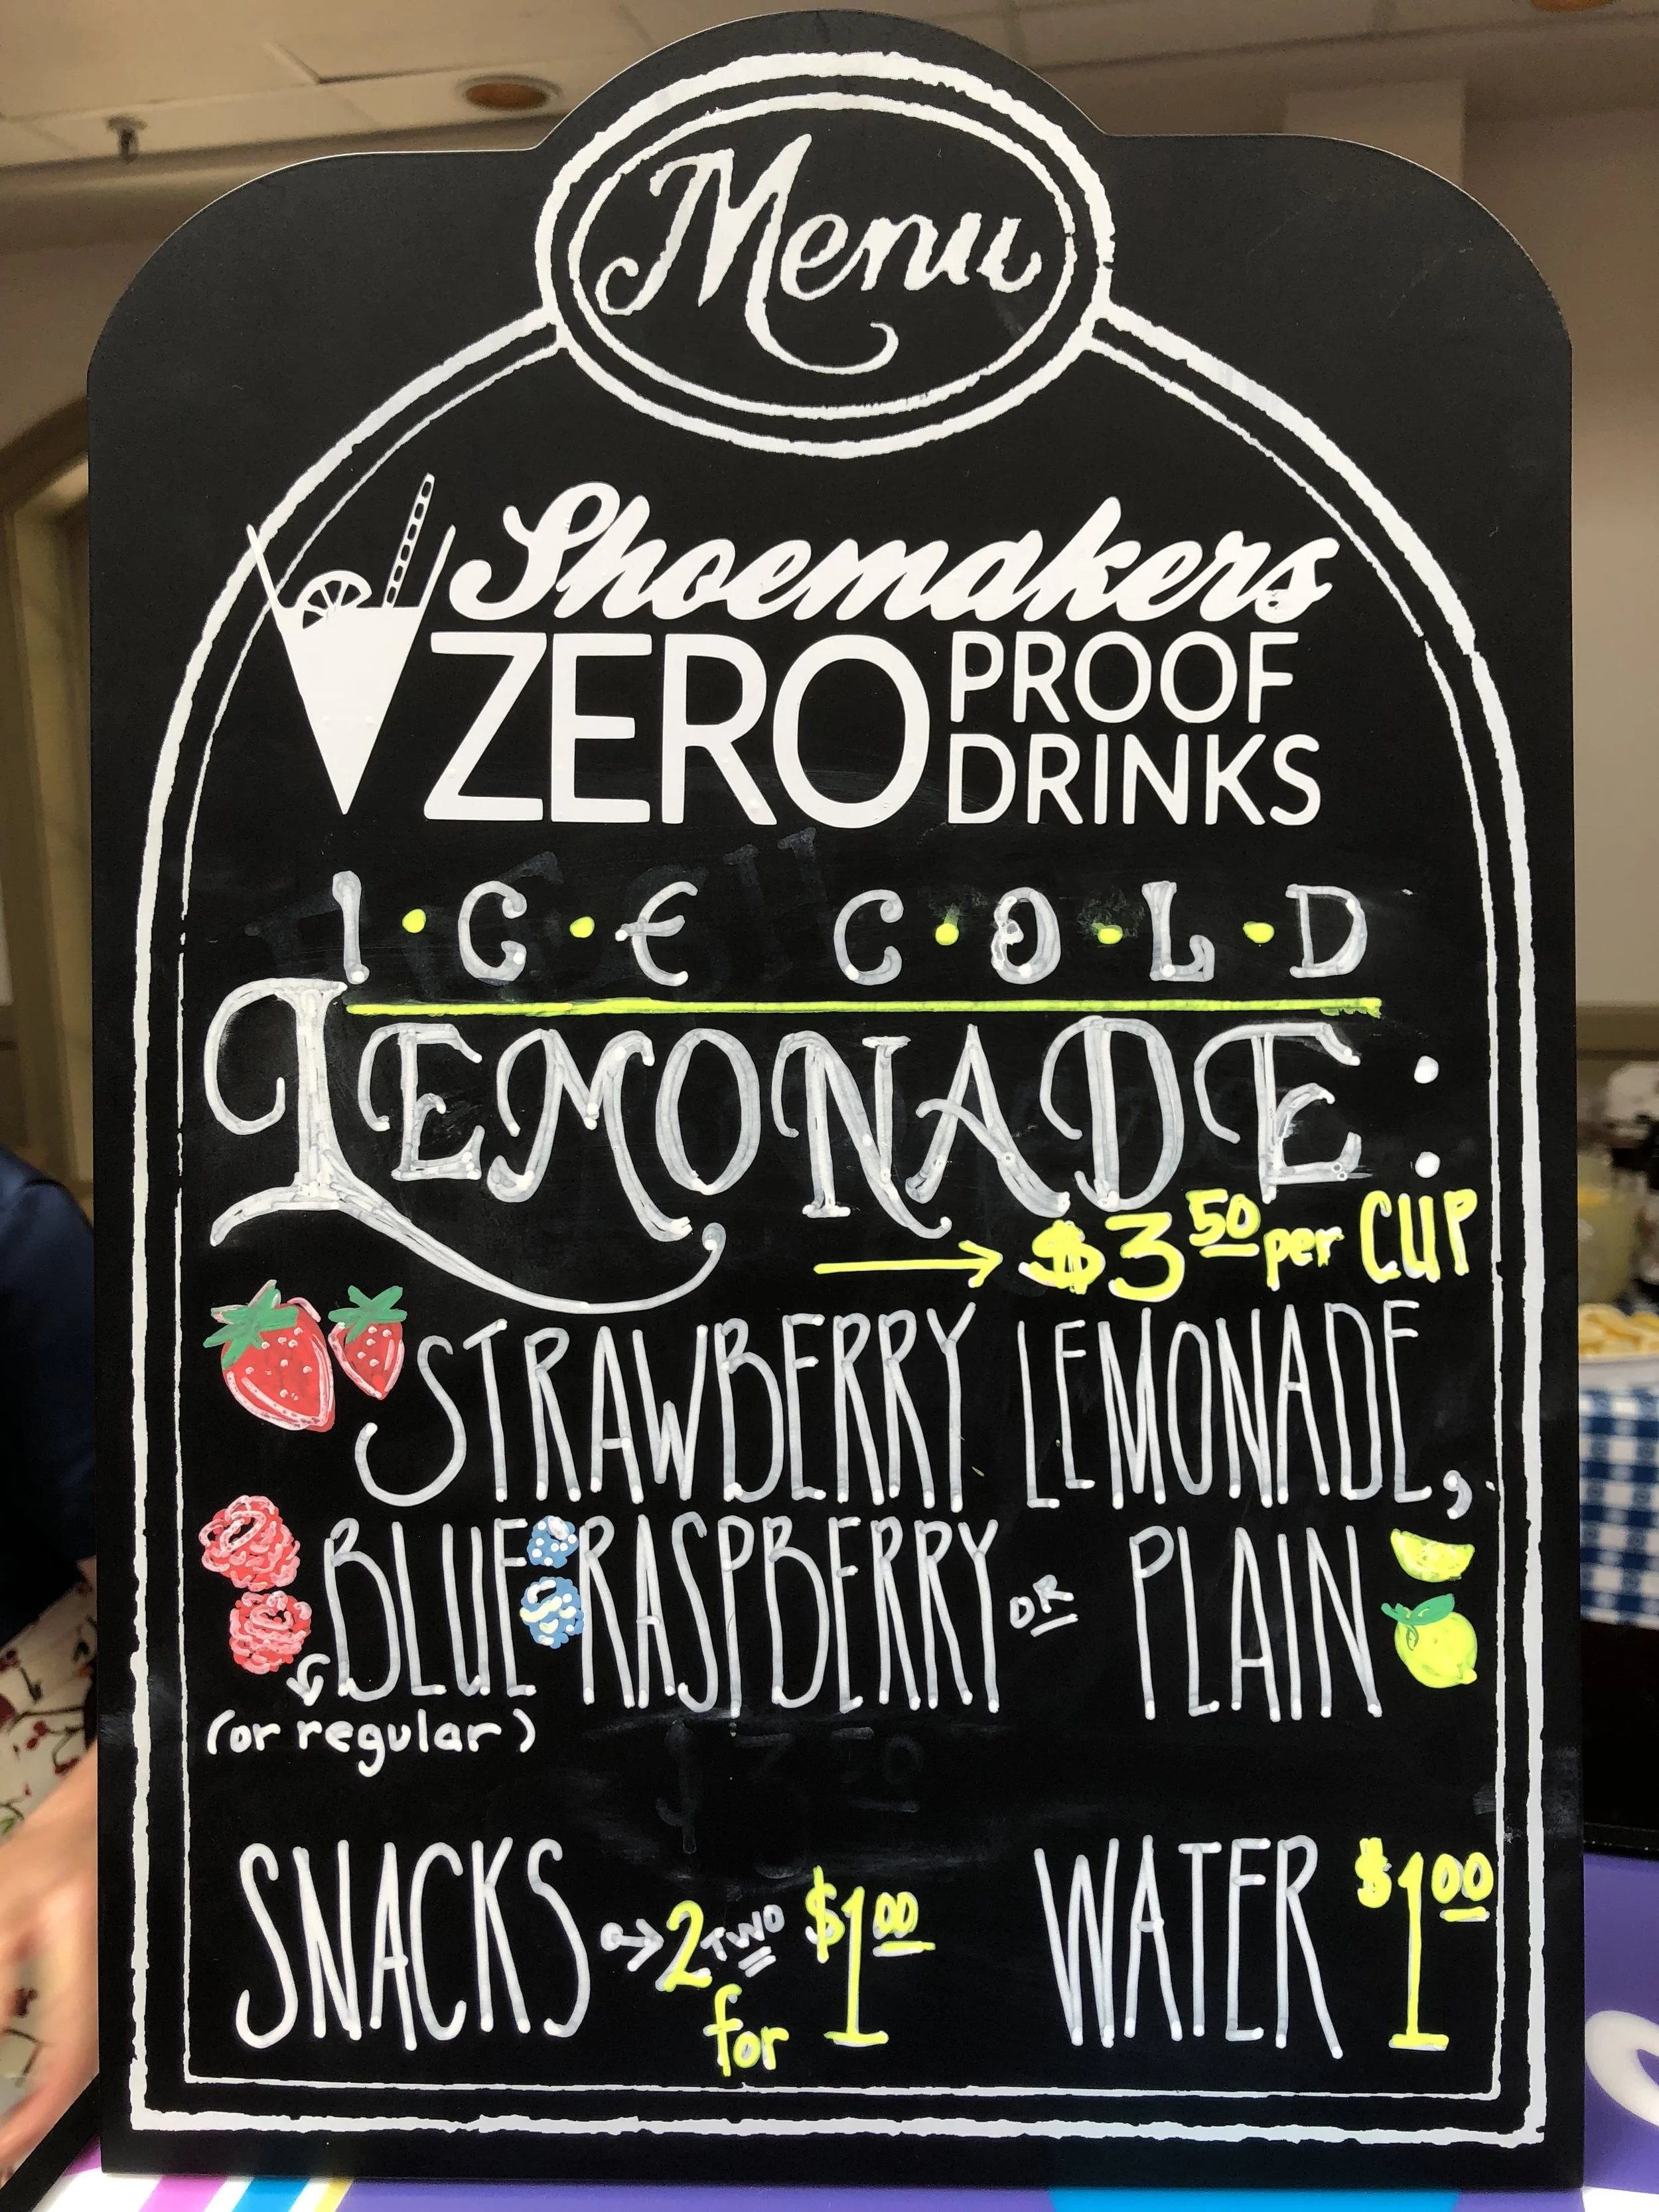 Menu
Shoemakers
ZERO PROOF
DRINKS
I•C•E C•O•L•D
LEMONADE:
→ $3 50 per CUP
STRAWBERRY LEMONADE,
BLUE RASPBERRY OR PLAIN
(or regular)
SNACKS → 2 TWO for $1 00 WATER $1 00